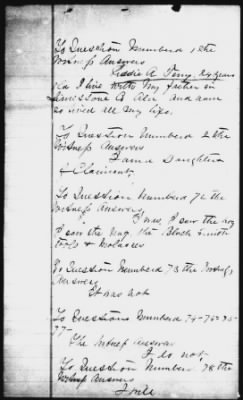 To Question Numbered 1 the
Witness Answers
Lizzie A. 24 years
old I live with my father in
Limestone Co Ala and have
so lived all my life.
To Question Numbered 2 the
Witness Answers
I am a Daughter
& Claimant
To Question Numbered 72 the
Witness Answers
I was, I saw the
I saw the Black Smith
Tools & Molasses
To Question Numbered 73 the Witness
Answers
It was not
To Questions Numbered 74-75-76-
77-
The Witness answers
I do not
To Question Number 78 the
Witness Answers